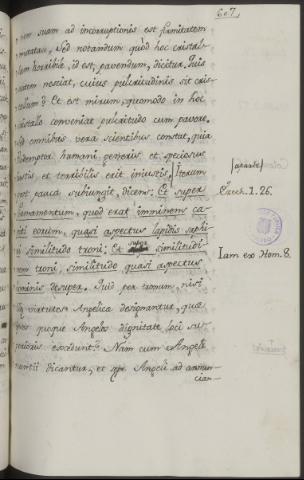 607.
nem suam ad incorruptionis est firmitatem
mutatum. Sed notandum quod hoc cristal-
lum horribile, id est, pavendum, dicitur. Quis
autem nesciat, cuius pulcritudinis sit cris-
tallum? Et est mirum, quomodo in hoc
cristallo conveniat pulcritudo cum pavore.
Sed omnibus vera scientibus constat, quia
Redemptor humani generis et speciosus
iustis et terribilis erit iniustis. Iterum
post pauca subiungit, dicens: Et super
firmamentum, quod erat imminens ca-
piti eorum, quasi aspectus lapidis saphi-
ri similitudo troni; Et super similitudi-
nem troni, similitudo quasi aspectus
hominis desuper. Quid per tronum, nisi
illæ virtutes Angelicæ designantur, quæ
ipsos quoque Angelos dignitate loci su-
perioris excedunt? Nam cum Angeli
nuntii dicantur, et sæpe Angeli ad annun-
cian-
Ezech. 1. 26.
Iam ex Hom. 8.